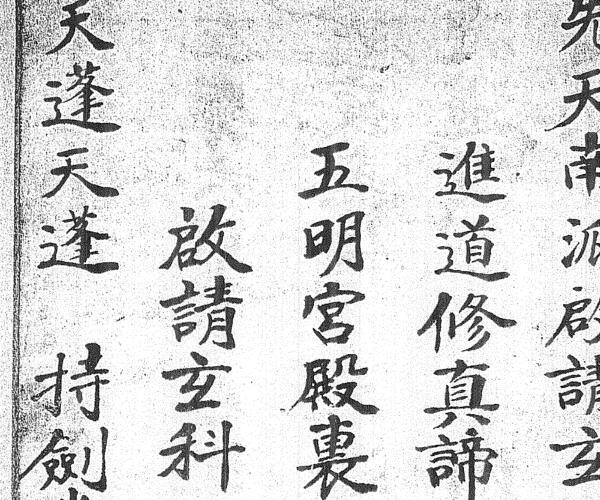 先天南派啟請玄
進道修真諦
五明宮殿裏
啟請玄科
天蓬天蓬 持劍